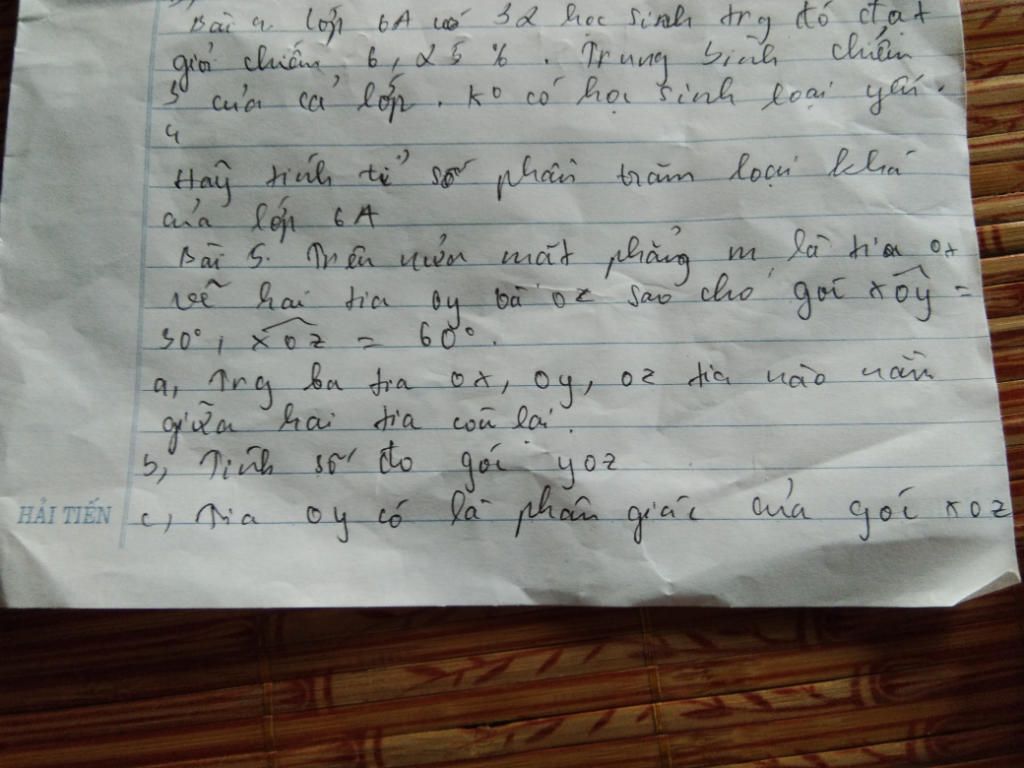 Bài 4. lớp 6A có 32 học sinh trg đó đạt
giỏi chiếm 6,25%. Trung bình chiếm
3 của cả lớp. ko có học sinh loại yếu.
4
Hãy tính tỉ số phần trăm loại khá
của lớp 6A
Bài 5. Trên nửa mặt phẳng m là tia ox
vẽ hai tia oy và oz sao cho góc xoy =
30°, xoz = 60°.
a, Trg ba tia ox, oy, oz tia nào nằm
giữa hai tia còn lại.
b, Tính số đo góc yoz
HẢI TIẾN c, Tia oy có là phân giác của góc xoz